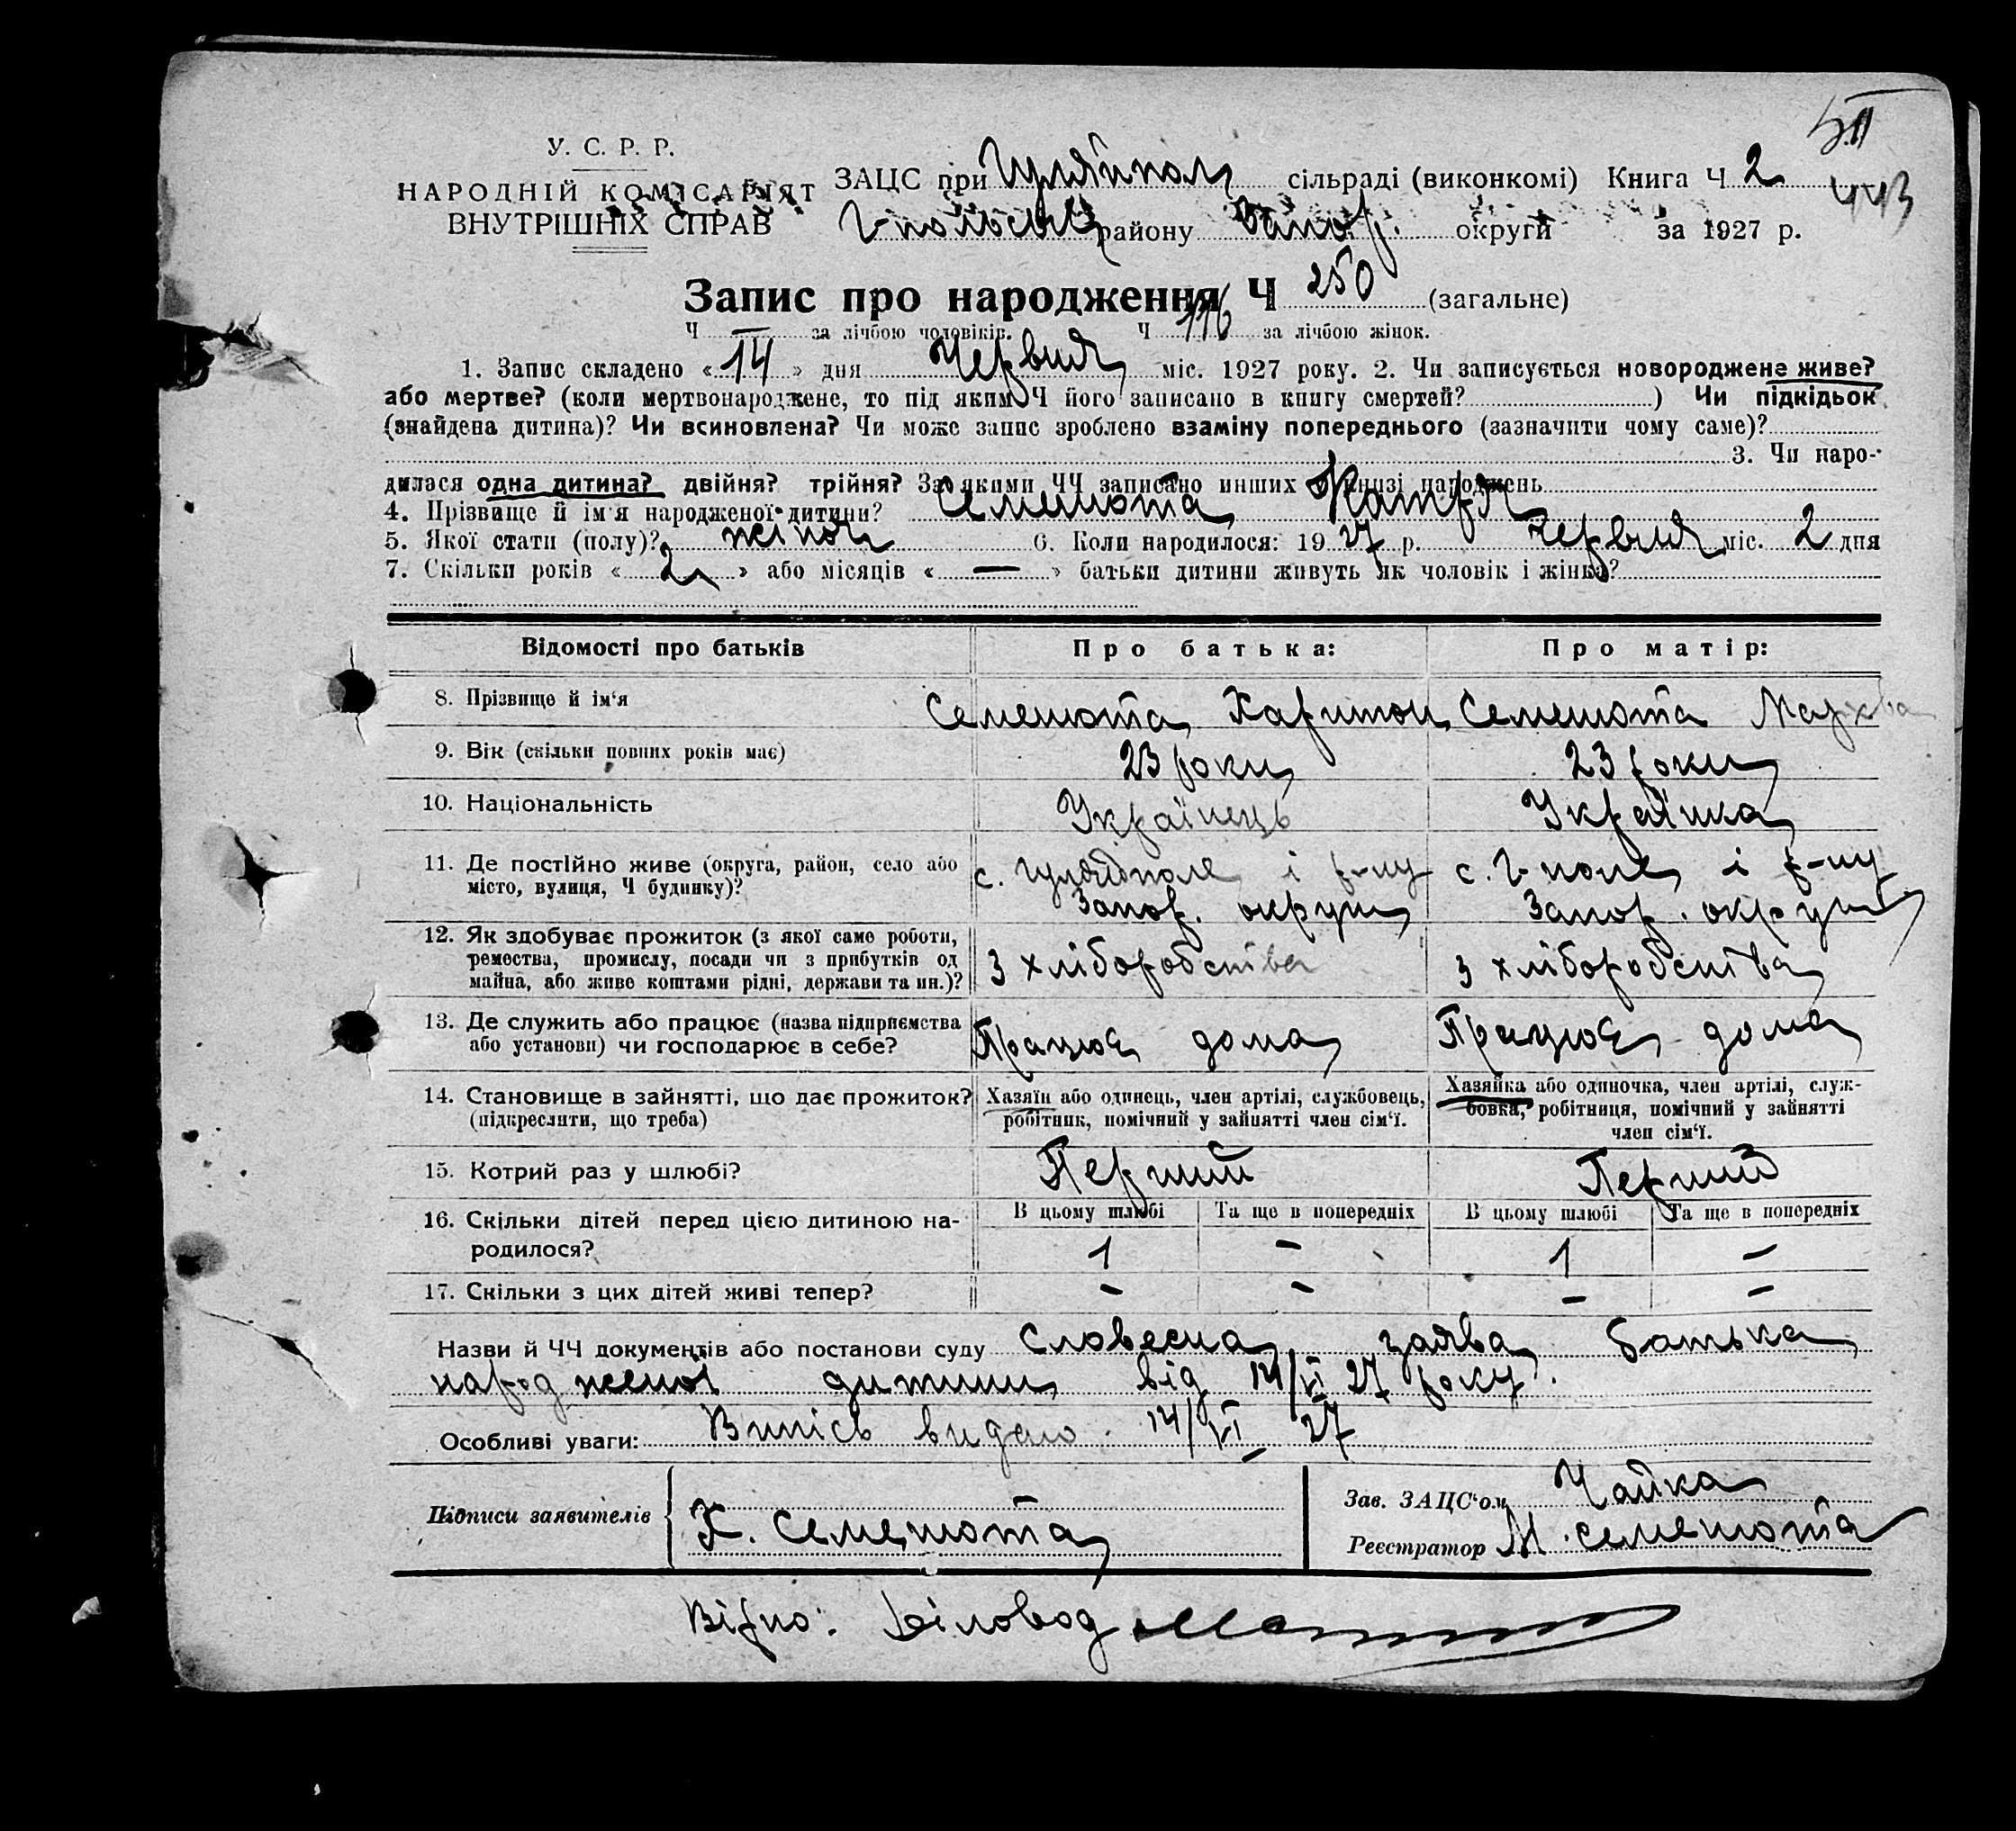 443
У. С. Р. Р.
НАРОДНІЙ КОМІСАРІЯТ
ВНУТРІШНІХ СПРАВ
ЗАЦС при Гуляйпол сільраді (виконкомі) Книга Ч 2
Г-польськ району Запор. округи за 1927 р.
Запис про народження Ч 250 (загальне)
Ч — за лічбою чоловіків. Ч 116 за лічбою жінок.
1. Запис складено «14» дня Червня міс. 1927 року. 2. Чи записується новороджене живе?
або мертве? (коли мертвонароджене, то під яким Ч його записано в книгу смертей? ) Чи підкідьок
(знайдена дитина)? Чи всиновлена? Чи може запис зроблено взаміну попереднього (зазначити чому саме)?
3. Чи наро-
дилася одна дитина? двійня? трійня? За якими ЧЧ записано инших в книзі народжень
4. Прізвище й ім'я народженої дитини? Семенюта Катря
5. Якої стати (полу)? жіноч 6. Коли народилося: 1927 р. Червня міс. 2 дня
7. Скільки років «2» або місяців «—» батьки дитини живуть як чоловік і жінка?
Відомості про батьків Про батька: Про матір:
8. Прізвище й ім'я Семенюта Харитон Семенюта
9. Вік (скільки повних років має) 23 роки 23 роки
10. Національність Українець Українка
11. Де постійно живе (округа, район, село або с. Гуляйполе і р-ну с. Г-поле і р-ну
місто, вулиця, Ч будинку)? Запор. округи Запор. округи
12. Як здобуває прожиток (з якої саме роботи,
ремества, промислу, посади чи з прибутків од з хліборобства з хліборобства
майна, або живе коштами рідні, держави та ин.)?
13. Де служить або працює (назва підприємства Працює дома Працює дома
або установи) чи господарює в себе?
14. Становище в зайнятті, що дає прожиток? Хазяїн або одинець, член артілі, службовець, Хазяйка або одиночка, член артілі, служ-
(підкреслити, що треба) робітник, помічний у зайнятті член сім'ї. бовка, робітниця, помічний у зайнятті
член сім'ї.
15. Котрий раз у шлюбі? Перший Перший
16. Скільки дітей перед цією дитиною на- В цьому шлюбі Та ще в попередніх В цьому шлюбі Та ще в попередніх
родилося? 1 – 1 –
17. Скільки з цих дітей живі тепер? – – – –
Назви й ЧЧ документів або постанови суду словесна заява батька
народженої дитини від 14/VI 27 року.
Особливі уваги: Випісь видано 14/VI 27
Підписи заявителів К. Семенюта
Зав. ЗАЦС'ом Чайка
Реєстратор М. Семенюта
Вірно: Діловод